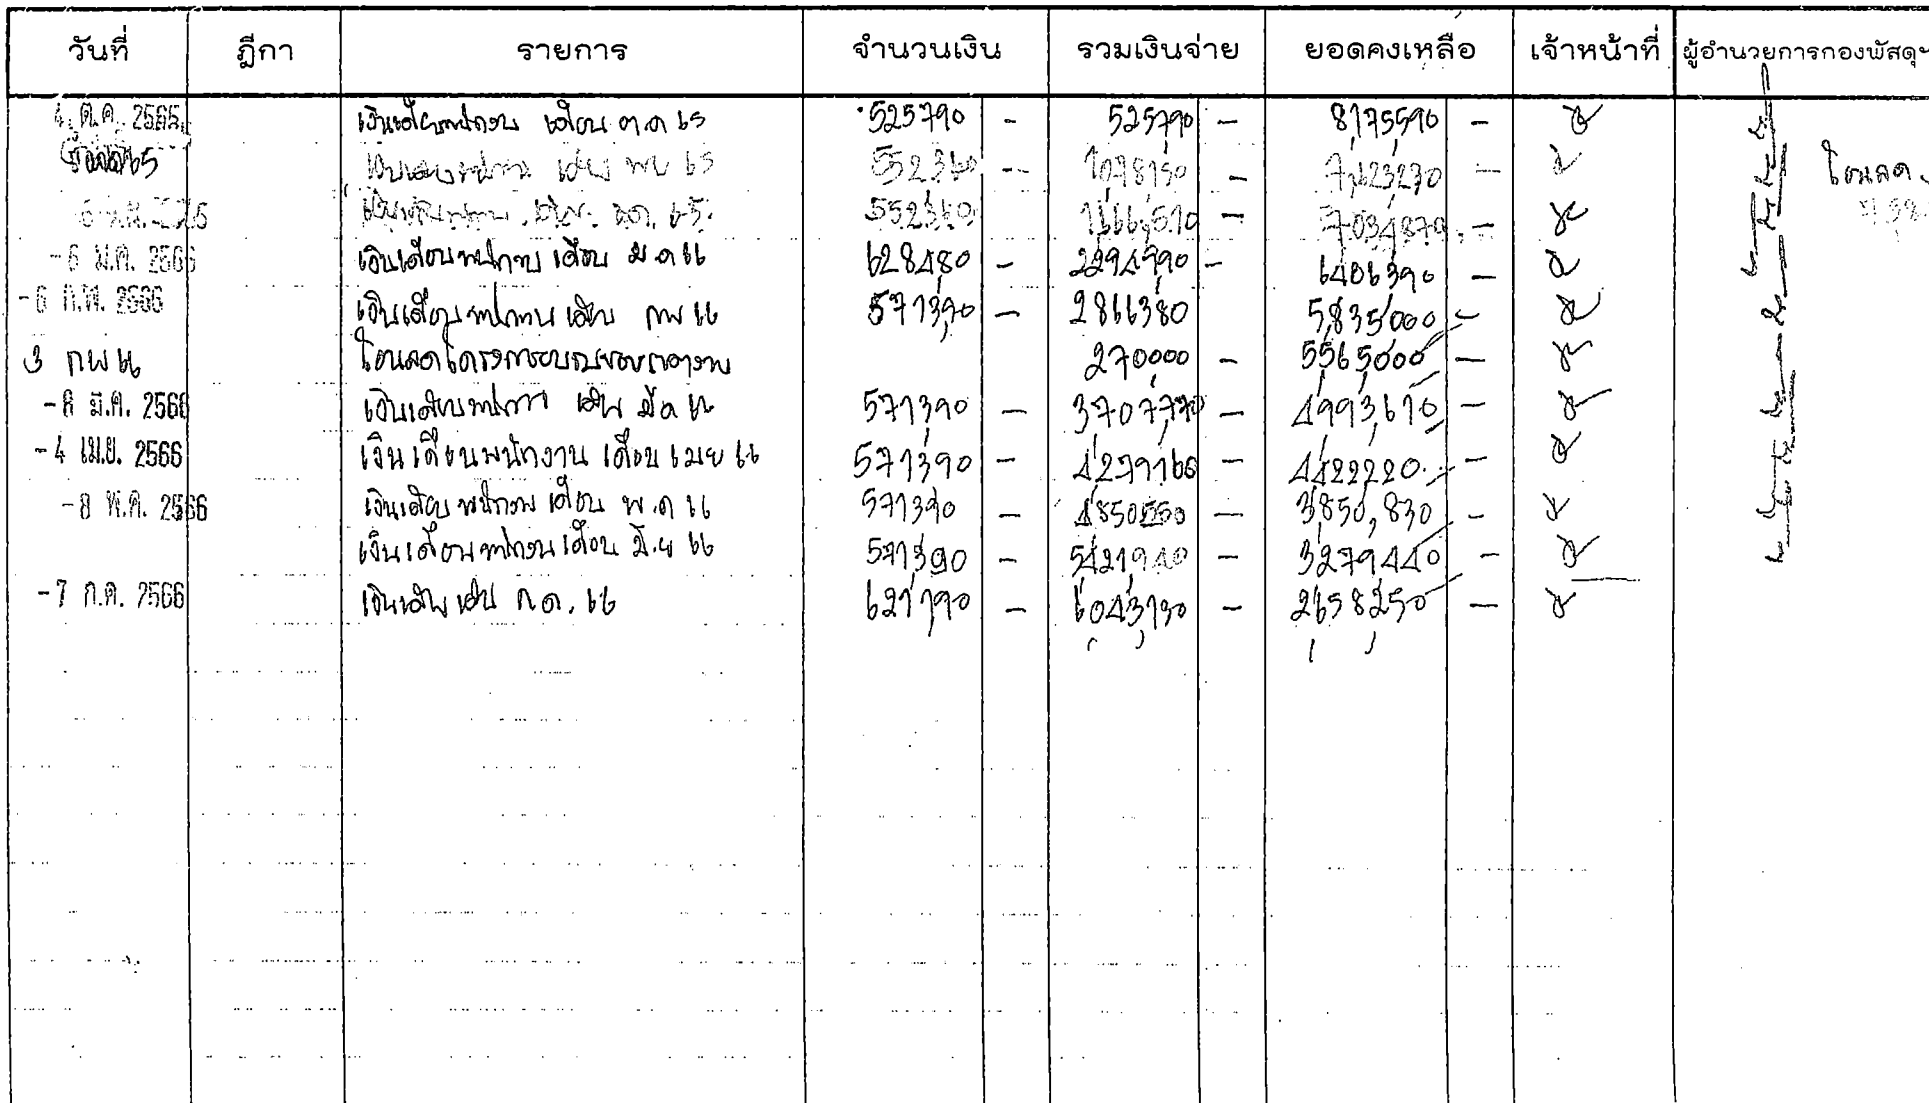 วันที่ ฎีกา รายการ จำนวนเงิน รวมเงินจ่าย ยอดคงเหลือ เจ้าหน้าที่ ผู้อำนวยการกองพัสดุฯ
4 ต.ค. 2565 เงินเดือนพนักงาน เดือน ต.ค 65 525790 - 525790 - 8175590 -
เงินเดือนพนักงาน เดือน พย 65 552360 - 1078150 - 7,623230 - โอนลด
เงินเดือนพนักงาน เดือน ธค. 65 552360 1666,510 - 7034870 -
-6 ม.ค. 2566 เงินเดือนพนักงาน เดือน ม.ค 66 628480 - 2294990 - 6406390 -
-6 ก.พ. 2566 เงินเดือนพนักงาน เดือน กพ 66 571390 - 2866380 5835000 -
3 กพ 66 โอนลดโครงการอบรม 270000 - 5565000 -
-8 มี.ค. 2566 เงินเดือนพนักงาน เดือน มีค 66 571390 - 3707,770 - 4993,610 -
-4 เม.ย. 2566 เงินเดือนพนักงาน เดือน เมย 66 571390 - 4279160 - 4422220 -
-8 พ.ค. 2566 เงินเดือนพนักงาน เดือน พ.ค 66 571390 - 4850550 - 3850,830 -
เงินเดือนพนักงาน เดือน มิ.ย 66 571390 - 5421940 - 3279440 -
-7 ก.ค. 2566 เงินเดือน เดือน ก.ค. 66 621190 - 6043130 - 2658250 -